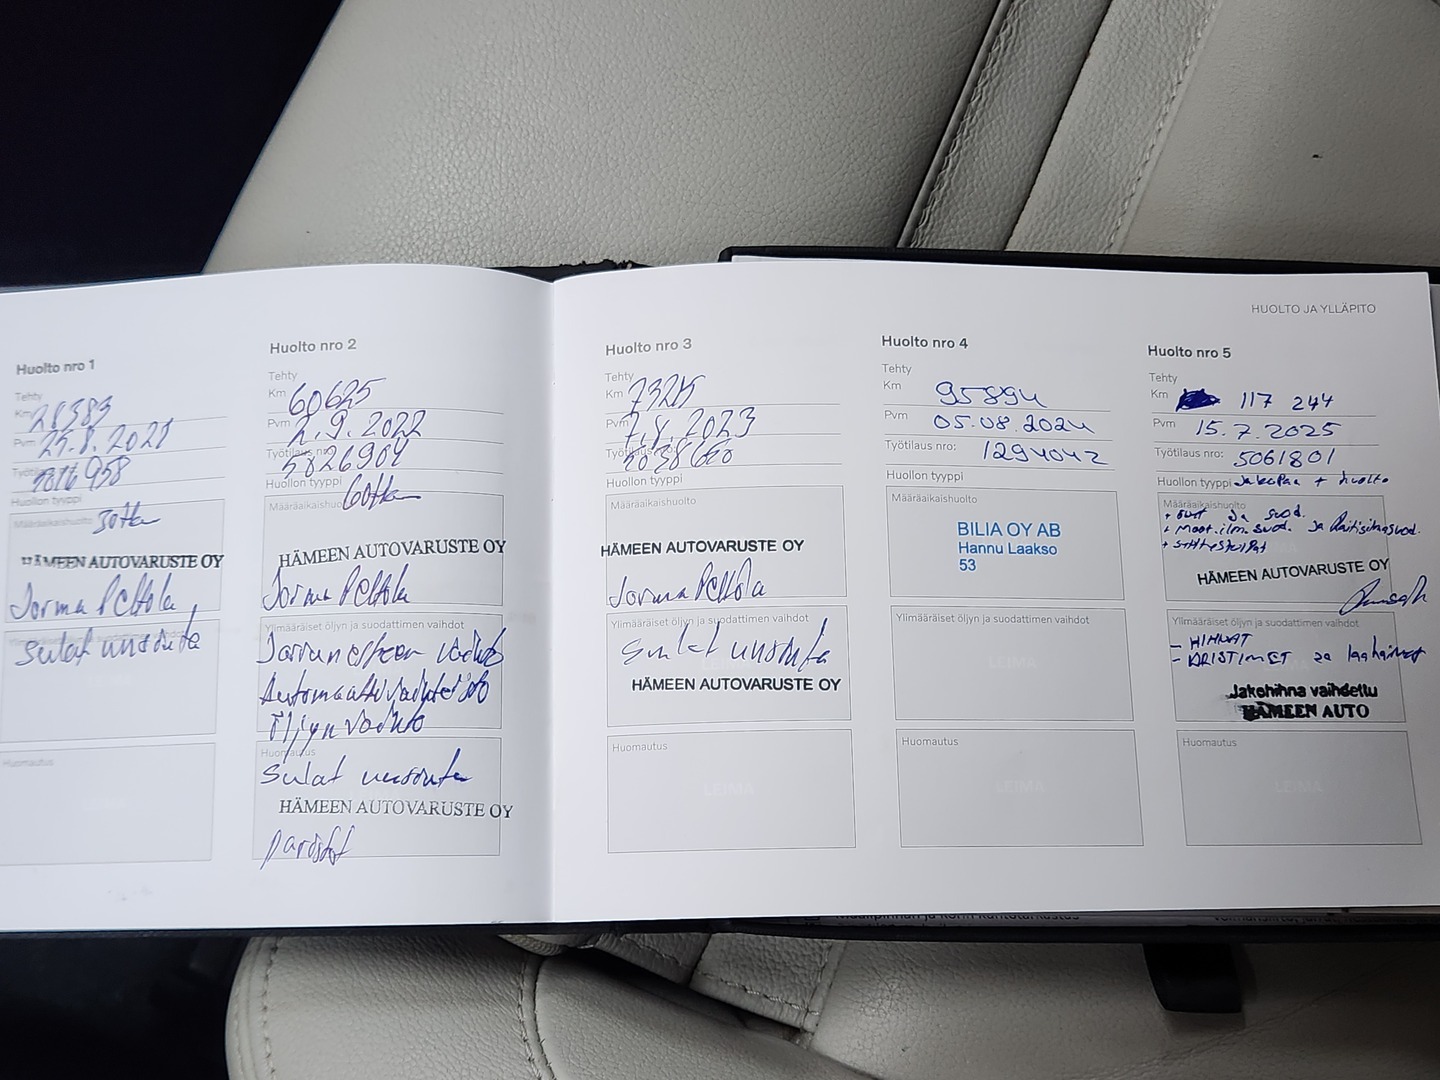 HUOLTO JA YLLÄPITO
Huolto nro 1
Km 28383
Pvm 25.8.2021
Huollon tyyppi
Määräaikaishuolto 30tkm
HÄMEEN AUTOVARUSTE OY
Jorma Peltola
Ylimääräiset öljyn ja suodattimen vaihdot
Sulat uusittu
Huomautus
Huolto nro 2
Tehty
Km 60625
Pvm 2.9.2022
Työtilaus nro: 5026904
Huollon tyyppi
Määräaikaishuolto 60tkm
HÄMEEN AUTOVARUSTE OY
Jorma Peltola
Ylimääräiset öljyn ja suodattimen vaihdot
Jarrunesteen vaihto
Automaattivaihteisto
öljyn vaihto
Huomautus
Sulat uusittu
HÄMEEN AUTOVARUSTE OY
Huolto nro 3
Tehty
Km 73215
Pvm 7.8.2023
Huollon tyyppi
Määräaikaishuolto
HÄMEEN AUTOVARUSTE OY
Jorma Peltola
Ylimääräiset öljyn ja suodattimen vaihdot
Sulat uusittu
HÄMEEN AUTOVARUSTE OY
Huomautus
LEIMA
Huolto nro 4
Tehty
Km 95894
Pvm 05.08.2024
Työtilaus nro: 1294042
Huollon tyyppi
Määräaikaishuolto
BILIA OY AB
Hannu Laakso
53
Ylimääräiset öljyn ja suodattimen vaihdot
Huomautus
LEIMA
Huolto nro 5
Tehty
Km 117 244
Pvm 15.7.2025
Työtilaus nro: 5061801
Huollon tyyppi Jakopää + huolto
Määräaikaishuolto
+ öljyt ja suod.
+ moot.ilm.suod. ja Raitisilmasuod.
HÄMEEN AUTOVARUSTE OY
Ylimääräiset öljyn ja suodattimen vaihdot
- HIHNAT
- KRISTIMET ja laahaimet
Jakohihna vaihdettu
HÄMEEN AUTO
Huomautus
LEIMA